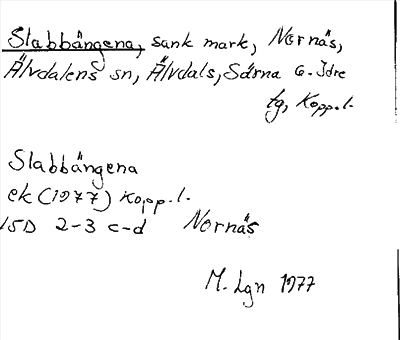 Slabbängena, sank mark, Nornäs,
Älvdalens sn, Älvdals, Särna o. Idre
tg, Kopp.l.
Slabbängena
ek (1977) Kopp.l.
15D 2-3 c-d Nornäs
M. Lgn 1977